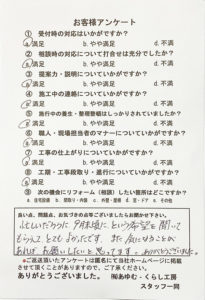 お客様アンケート
① 受付時の対応はいかがですか？
a.満足 b.やや満足 d.不満
② 相談時の対応について打合せは充分でしたか？
a.満足 b.やや満足 d.不満
③ 提案力・説明についていかがですか？
a.満足 b.やや満足 d.不満
④ 施工中の連絡についていかがですか？
a.満足 b.やや満足 d.不満
⑤ 施行中の養生・整理整頓はしっかりされていましたか？
a.満足 b.やや満足 d.不満
⑥ 職人・現場担当者のマナーについていかがですか？
a.満足 b.やや満足 d.不満
⑦ 工事の仕上がりについていかがですか？
a.満足 b.やや満足 d.不満
⑧ 工期・工事段取り・進行についていかがですか？
a.満足 b.やや満足 d.不満
⑨ 次の機会にリフォーム（相談）したい箇所はどこですか？
a.住宅設備 b.間取り・内装 c.外壁・屋根 d.窓・ドア e.その他
良い点、問題点、お気づきの点等ございましたらお聞かせ下さい。
忙しいだろうに、月末頃に、という希望を聞いて
もらえて とてもよかったです。また 何かありましたら
お願いしたいと思ってます。ありがとうございました。
※ご返送頂いたアンケートは匿名にて当社ホームページに掲載
させて頂くことがありますので、ご了承ください。
ありがとうございました。 ㈲あゆむ・くらし工房
スタッフ一同